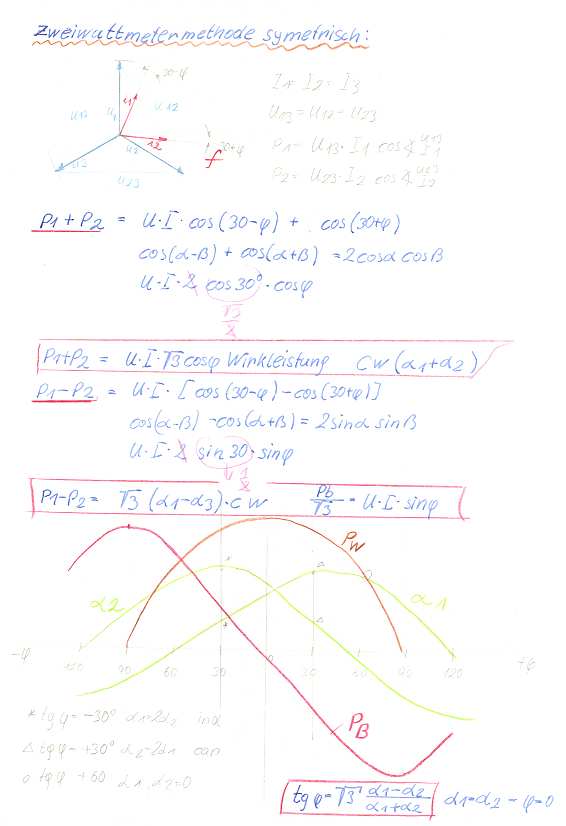 Zweiwattmetermethode symetrisch:
30-φ
I1 I2 = I3
U13 = U12 - U23
P1 = U13 · I1 cos ∢ U13 I1
P2 = U23 · I2 cos ∢ U23 I2
U13
U1
I1
U12
I2
30+φ
U2
U23
P1 + P2 = U·I·cos(30-φ) + cos(30+φ)
cos(α-β) + cos(α+β) = 2cosα cosβ
U·I·2 cos30° · cosφ
√3
2
P1+P2 = U·I·√3 cosφ Wirkleistung CW (α1+α2)
P1-P2 = U·I · [cos(30-φ) - cos(30+φ)]
cos(α-β) - cos(α+β) = 2sinα sinβ
U·I·2 sin30 · sinφ
1
2
P1-P2 = √3 (α1-α3)·CW Pb/√3 = U·I·sinφ
PW
α2
α1
-φ 120 90 60 30 0 30 60 90 120 +φ
PB
* tgφ = -30° α1=2α2 ind
△ tgφ = +30° α2=2α1 cap
o tgφ +60 α1 α2=0
tgφ = √3 α1-α2/α1+α2 α1=α2 - φ=0